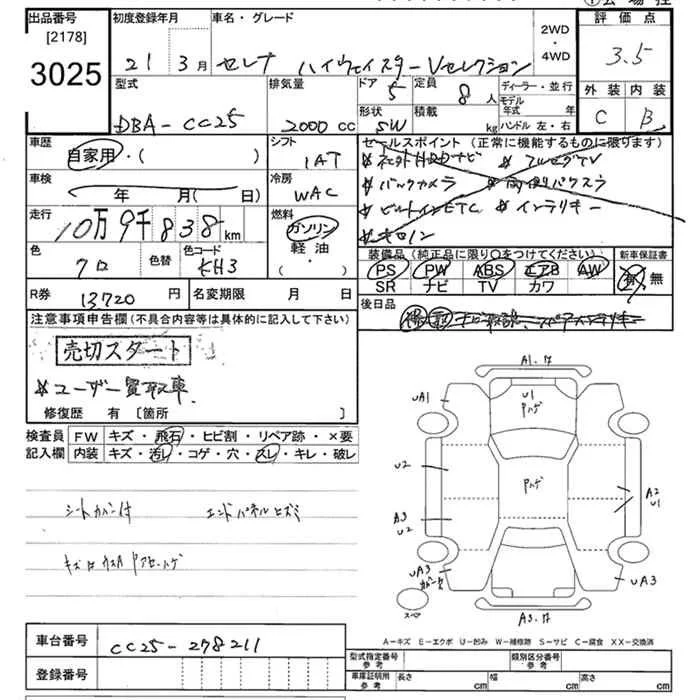 出品番号
[2178]
3025
初度登録年月
21 3月
車名・グレード
セレナ ハイウェイスター Vセレクション
2WD
・
4WD
評価点
3.5
外装 内装
C B
型式
DBA-CC25
排気量
2000 cc
ドア
5
形状
SW
定員
8 人
積載
kg
ディーラー・並行
モデル
年式 年
ハンドル 左・右
車歴
自家用・( )
シフト
1AT
車検
年 月( 日)
冷房
WAC
走行
10万9千838km
燃料
ガソリン
軽油
( ・ )
色
クロ
色替
色コード
KH3
R券 13720 円
名変期限 月 日
セールスポイント (正常に機能するものに限ります)
*社外HDDナビ *フルセグTV
*バックカメラ *両側パワスラ
*ビルトインETC *インテリキー
*キセノン
装備品(純正品に限り○をつけてください)
PS PW ABS エアB AW
SR ナビ TV カワ
新車保証書
有 無
後日品
注意事項申告欄(不具合内容等は具体的に記入して下さい)
売切スタート
*ユーザー買取車
修復歴 有 [箇所 ]
検査員
記入欄
FW キズ・飛石・ヒビ割・リペア跡・×要
内装 キズ・汚レ・コゲ・穴・スレ・キレ・破レ
シートカバー付 エンドパネルヒズミ
A1.ワ
UA1
U1
Pハゲ
U2
Pハゲ
A3
U2
A2
U1
UA3
UA3
スペア
A3.ワ
A-キズ E-エクボ U-凹み W-補修跡 S-サビ C-腐食 XX-交換済
車台番号 CC25-278211
登録番号
型式指定番号
参考
類別区分番号
参考
車庫証明用
参考
長さ cm
幅 cm
高さ cm